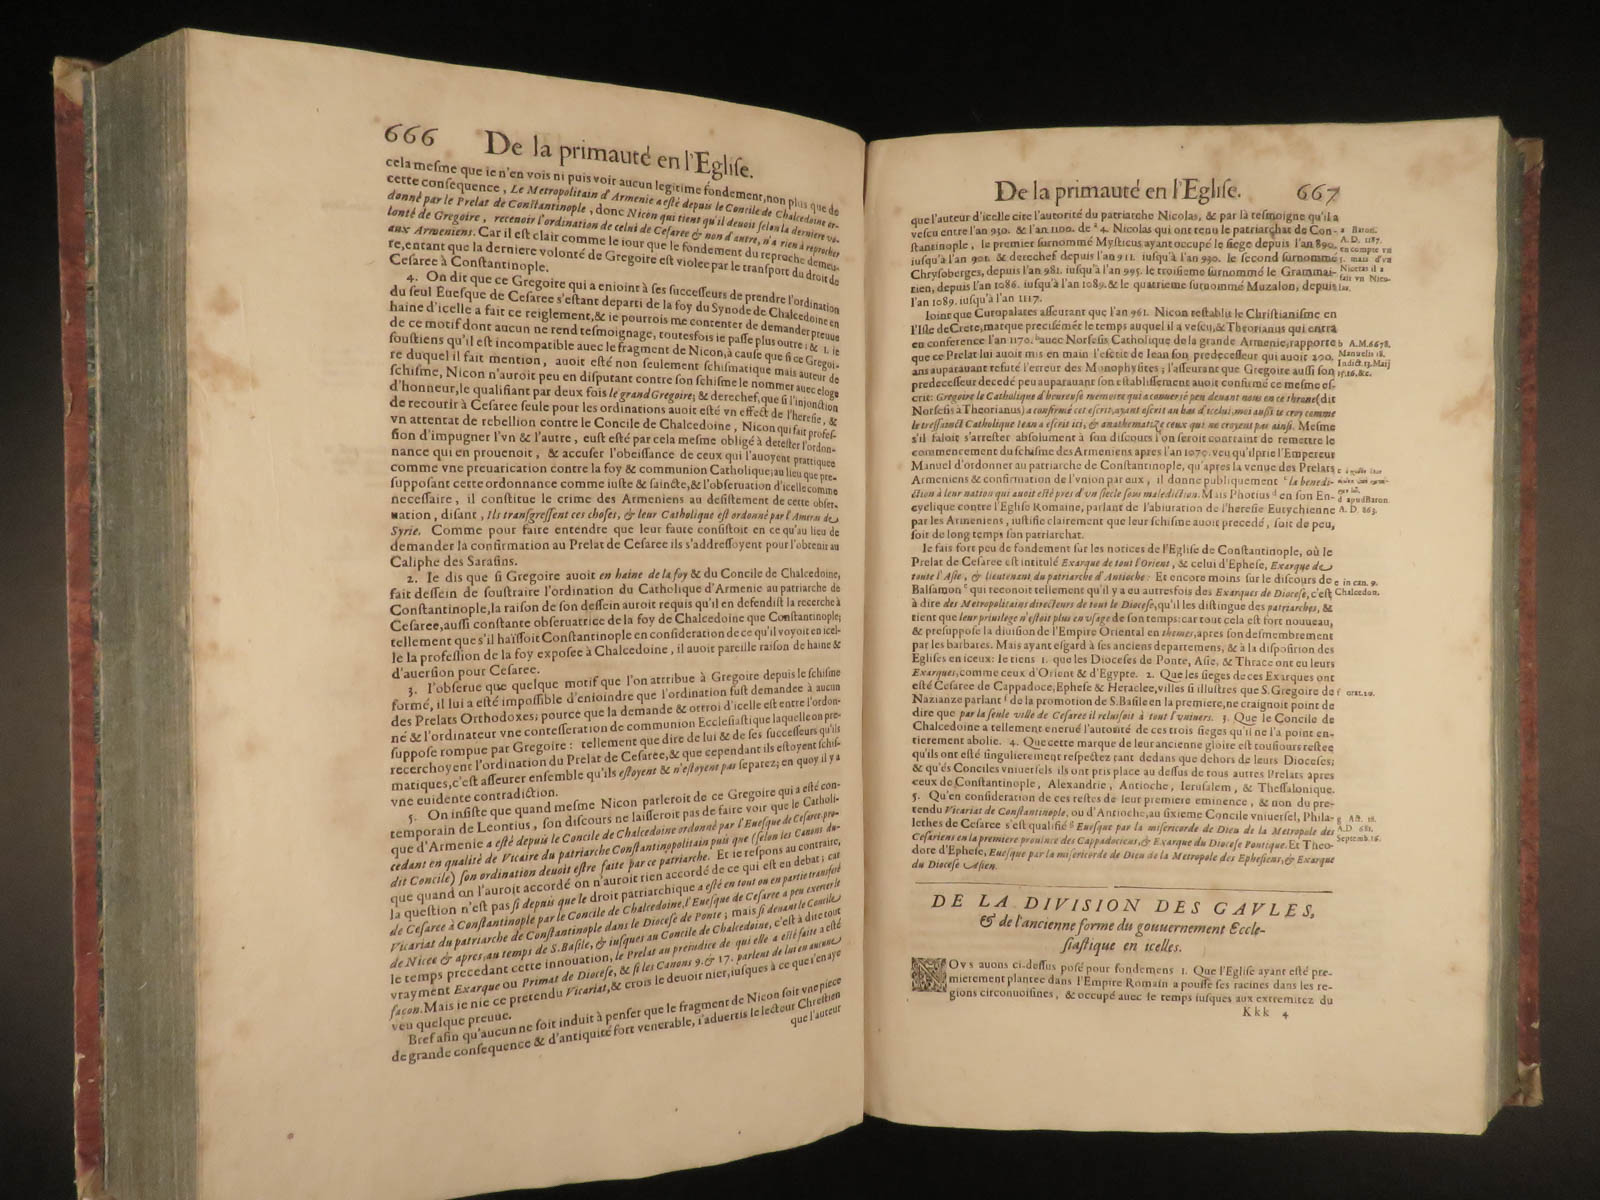 666 De la primauté en l'Egliſe.
cela meſme que ie n'en vois ni puis voir aucun legitime fondement, non plus que de
cette conſequence, Le Metropolitain d'Armenie a eſté depuis le Concile de Chalcedoine or-
donné par le Prelat de Conſtantinople, donc Nicon qui tient qu'il deuoit ſelon la derniere vo-
lonté de Gregoire, receuoir l'ordination de celui de Ceſaree & non d'autre, n'a rien à reprocher
aux Armeniens. Car il eſt clair comme le iour que le fondement du reproche demeu-
re, entant que la derniere volonté de Gregoire eſt violee par le tranſport du droit de
Ceſaree à Conſtantinople.
4. On dit que ce Gregoire qui a enioint à ſes ſucceſſeurs de prendre l'ordination
du ſeul Eueſque de Ceſaree s'eſtant departi de la foy du Synode de Chalcedoine en
haine d'icelle a fait ce reiglement, & ie pourrois me contenter de demander preuue
de ce motif dont aucun ne rend teſmoignage, toutesfois ie paſſe plus outre: & 1. ie
ſouſtiens qu'il eſt incompatible auec le fragment de Nicon, à cauſe que ſi ce Gregoi-
re duquel il fait mention, auoit eſté non ſeulement ſchiſmatique mais auteur de
ſchiſme, Nicon n'auroit peu en diſputant contre ſon ſchiſme le nommer auec eloge
d'honneur, le qualifiant par deux fois le grand Gregoire; & derechef, que ſi l'inionction
de recourir à Ceſaree ſeule pour les ordinations auoit eſté vn effect de l'hereſie, &
vn attentat de rebellion contre le Concile de Chalcedoine, Nicon qui fait profeſ-
ſion d'impugner l'vn & l'autre, euſt eſté par cela meſme obligé à deteſter l'ordon-
nance qui en prouenoit, & accuſer l'obeiſſance de ceux qui l'auoyent prattiquee
comme vne preuarication contre la foy & communion Catholique; au lieu que pre-
ſuppoſant cette ordonnance comme iuſte & ſaincte, & l'obſeruation d'icelle comme
neceſſaire, il conſtitue le crime des Armeniens au deſiſtement de cette obſer-
uation, diſant, Ils tranſgreſſent ces choſes, & leur Catholique eſt ordonné par l'Ameras de
Syrie. Comme pour faire entendre que leur faute conſiſtoit en ce qu'au lieu de
demander la confirmation au Prelat de Ceſaree ils s'addreſſoyent pour l'obtenir au
Caliphe des Saraſins.
2. Ie dis que ſi Gregoire auoit en haine de la foy & du Concile de Chalcedoine,
fait deſſein de ſouſtraire l'ordination du Catholique d'Armenie au patriarche de
Conſtantinople, la raiſon de ſon deſſein auroit requis qu'il en defendiſt la recerche à
Ceſaree, auſſi conſtante obſeruatrice de la foy de Chalcedoine que Conſtantinople;
tellement que s'il haïſſoit Conſtantinople en conſideration de ce qu'il voyoit en icel-
le la profeſſion de la foy expoſee à Chalcedoine, il auoit pareille raiſon de haine &
d'auerſion pour Ceſaree.
3. I'obſerue que quelque motif que l'on attribue à Gregoire depuis le ſchiſme
formé, il lui a eſté impoſſible d'enioindre que l'ordination fuſt demandee à aucun
des Prelats Orthodoxes; pource que la demande & ottroi d'icelle eſt entre l'ordon-
né & l'ordinateur vne conteſſeration de communion Eccleſiaſtique laquelle on pre-
ſuppoſe rompue par Gregoire: tellement que dire de lui & de ſes ſucceſſeurs qu'ils
recerchoyent l'ordination du Prelat de Ceſaree, & que cependant ils eſtoyent ſchiſ-
matiques, c'eſt aſſeurer enſemble qu'ils eſtoyent & n'eſtoyent pas ſeparez; en quoy il y a
vne euidente contradiction.
5. On inſiſte que quand meſme Nicon parleroit de ce Gregoire qui a eſté con-
temporain de Leontius, ſon diſcours ne laiſſeroit pas de faire voir que le Catholi-
que d'Armenie a eſté depuis le Concile de Chalcedoine ordonné par l'Eueſque de Ceſaree pro-
cedant en qualité de Vicaire du patriarche Conſtantinopolitain puis que (ſelon les Canons du-
dit Concile) ſon ordination deuoit eſtre faite par ce patriarche. Et ie reſpons au contraire,
que quand on l'auroit accordé on n'auroit rien accordé de ce qui eſt en debat; car
la queſtion n'eſt pas ſi depuis que le droit patriarchique a eſté en tout ou en partie transferé
de Ceſaree à Conſtantinople par le Concile de Chalcedoine, l'Eueſque de Ceſaree a peu exercer le
Vicariat du patriarche de Conſtantinople dans le Dioceſe de Ponte; mais ſi deuant le Concile
de Nicee & apres, au temps de S. Baſile, & iuſques au Concile de Chalcedoine, c'eſt à dire tout
le temps precedant cette innouation, le Prelat au preiudice de qui elle a eſté faite a eſté
vrayment Exarque ou Primat de Dioceſe, & ſi les Canons 9. & 17. parlent de lui en aucune
façon. Mais ie nie ce pretendu Vicariat, & crois le deuoir nier, iuſques à ce que i'en aye
veu quelque preuue.
Bref afin qu'aucun ne ſoit induit à penſer que le fragment de Nicon ſoit vne piece
de grande conſequence & d'antiquité fort venerable, i'aduertis le lecteur Chreſtien
que l'auteur
De la primauté en l'Egliſe. 667
que l'auteur d'icelle cite l'autorité du patriarche Nicolas, & par là teſmoigne qu'il a
veſcu entre l'an 930. & l'an 1100. de a 4. Nicolas qui ont tenu le patriarchat de Con-
ſtantinople, le premier ſurnommé Myſticus ayant occupé le ſiege depuis l'an 890.
iuſqu'à l'an 901. & derechef depuis l'an 911. iuſqu'à l'an 930. le ſecond ſurnommé
Chryſoberges, depuis l'an 981. iuſqu'à l'an 995. le troiſieme ſurnommé le Grammai-
rien, depuis l'an 1086. iuſqu'à l'an 1089. & le quatrieme ſurnommé Muzalon, depuis
l'an 1089. iuſqu'à l'an 1117.
a Baron.
A. D. 1187.
en compte vn
5. mais d'vn
Nicetas il a
fait vn Nico-
las.
Ioint que Curopalates aſſeurant que l'an 961. Nicon reſtablit le Chriſtianiſme en
l'Iſle de Crete, marque preciſemēt le temps auquel il a veſcu, & Theorianus qui entra
en conference l'an 1170. b auec Norſeſis Catholique de la grande Armenie, rapporte
que ce Prelat lui auoit mis en main l'eſcrit de Iean ſon predeceſſeur qui auoit 200.
ans auparauant refuté l'erreur des Monophyſites; l'aſſeurant que Gregoire auſſi ſon
predeceſſeur decedé peu auparauant ſon eſtabliſſement auoit confirmé ce meſme eſ-
crit: Gregoire le Catholique d'heureuſe memoire qui a conuerſé peu deuant nous en ce throne (dit
Norſeſis à Theorianus) a confirmé cet eſcrit, ayant eſcrit au bas d'icelui, moi auſſi ie croy comme
le treſſainct Catholique Iean a eſcrit ici, & anathematize ceux qui ne croyent pas ainſi. Meſme
s'il faloit s'arreſter abſolument à ſon diſcours l'on ſeroit contraint de remettre le
commencement du ſchiſme des Armeniens apres l'an 1070. veu qu'il prie l'Empereur
Manuel d'ordonner au patriarche de Conſtantinople, qu'apres la venue des Prelats
Armeniens & confirmation de l'vnion par eux, il donne publiquement c la benedi-
ction à leur nation qui auoit eſté pres d'vn ſiecle ſous malediction. Mais Photius d en ſon En-
cyclique contre l'Egliſe Romaine, parlant de l'abiuration de l'hereſie Eutychienne
par les Armeniens, iuſtifie clairement que leur ſchiſme auoit precedé, ſoit de peu,
ſoit de long temps ſon patriarchat.
b A.M. 6678.
Manuelis 18.
Indict. 13. Maij
15. 16. &c.
d apud Baron.
A. D. 863.
Ie fais fort peu de fondement ſur les notices de l'Egliſe de Conſtantinople, où le
Prelat de Ceſaree eſt intitulé Exarque de tout l'Orient, & celui d'Epheſe, Exarque de
toute l'Aſie, & lieutenant du patriarche d'Antioche: Et encore moins ſur le diſcours de
Balſamon e qui reconoit tellement qu'il y a eu autresfois des Exarques de Dioceſe, c'eſt
à dire des Metropolitains directeurs de tout le Dioceſe, qu'il les diſtingue des patriarches, &
tient que leur priuilege n'eſtoit plus en vſage de ſon temps: car tout cela eſt fort nouueau,
& preſuppoſe la diuiſion de l'Empire Oriental en themes, apres ſon deſmembrement
par les barbares. Mais ayant eſgard à ſes anciens departemens, & à la diſpoſition des
Egliſes en iceux: ie tiens 1. que les Dioceſes de Ponte, Aſie, & Thrace ont eu leurs
Exarques, comme ceux d'Orient & d'Egypte. 2. Que les ſieges de ces Exarques ont
eſté Ceſaree de Cappadoce, Epheſe & Heraclee, villes ſi illuſtres que S. Gregoire de
Nazianze parlant f de la promotion de S. Baſile en la premiere, ne craignoit point de
dire que par la ſeule ville de Ceſaree il reluiſoit à tout l'vniuers. 3. Que le Concile de
Chalcedoine a tellement enerué l'autorité de ces trois ſieges qu'il ne l'a point en-
tierement abolie. 4. Que cette marque de leur ancienne gloire eſt touſiours reſtee
qu'ils ont eſté ſingulierement reſpectez tant dedans que dehors de leurs Dioceſes;
& qu'és Conciles vniuerſels ils ont pris place au deſſus de tous autres Prelats apres
ceux de Conſtantinople, Alexandrie, Antioche, Ieruſalem, & Theſſalonique.
5. Qu'en conſideration de ces reſtes de leur premiere eminence, & non du pre-
tendu Vicariat de Conſtantinople, ou d'Antioche, au ſixieme Concile vniuerſel, Phila-
lethes de Ceſaree s'eſt qualifié g Eueſque par la miſericorde de Dieu de la Metropole des
Ceſariens en la premiere prouince des Cappadociens, & Exarque du Dioceſe Pontique. Et Theo-
dore d'Epheſe, Eueſque par la miſericorde de Dieu de la Metropole des Epheſiens, & Exarque
du Dioceſe Aſien.
e in can. 9.
Chalcedon.
f orat. 20.
g Act. 18.
A.D. 681.
Septemb. 16.
DE LA DIVISION DES GAVLES,
& de l'ancienne forme du gouuernement Eccle-
ſiaſtique en icelles.
NOVS auons ci-deſſus poſé pour fondemens 1. Que l'Egliſe ayant eſté pre-
mierement plantee dans l'Empire Romain a pouſſé ſes racines dans les re-
gions circonuoiſines, & occupé auec le temps iuſques aux extremitez du
Kkk 4